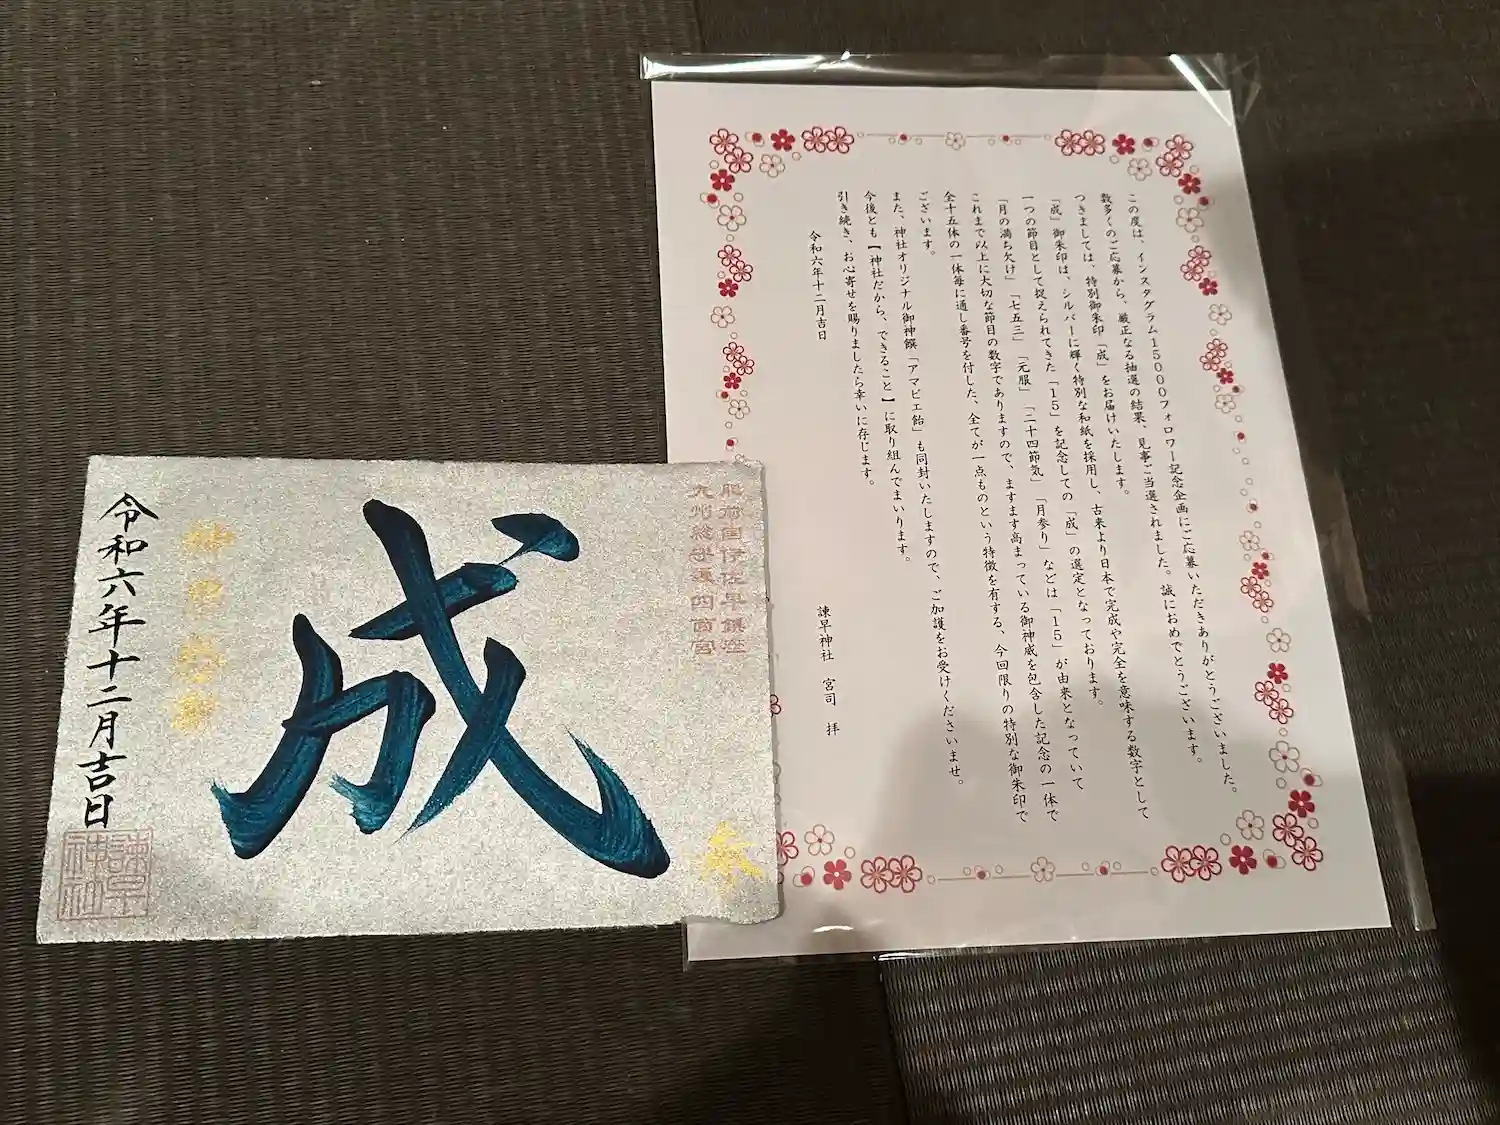 この度は、インスタグラム15000フォロワー記念企画にご応募いただきありがとうございました。
数多くのご応募から、厳正なる抽選の結果、見事ご当選されました。誠におめでとうございます。
つきましては、特別御朱印「成」をお届けいたします。
「成」御朱印は、シルバーに輝く特別な和紙を採用し、古来より日本で完成や完全を意味する数字として
一つの節目として捉えられてきた「15」を記念しての「成」の選定となっております。
「月の満ち欠け」「七五三」「元服」「二十四節気」「月参り」などは「15」が由来となっていて
これまで以上に大切な節目の数字でありますので、ますます高まっている御神威を包含した記念の一体で
全十五体の一体毎に通し番号を付した、全てが一点ものという特徴を有する、今回限りの特別な御朱印で
ございます。
また、神社オリジナル御神饌「アマビエ飴」も同封いたしますので、ご加護をお受けくださいませ。
今後とも【神社だから、できること】に取り組んでまいります。
引き続き、お心寄せを賜りましたら幸いに存じます。
令和六年十二月吉日
諫早神社 宮司 拝
肥前国伊佐早鎮座
九州総守護四面宮
成
令和六年十二月吉日
諫早神社